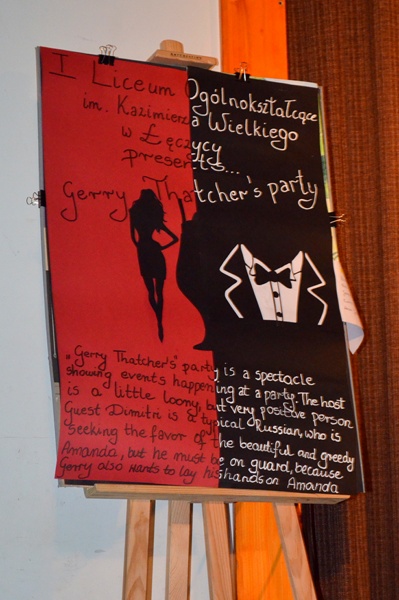 I Liceum Ogólnokształcące
im. Kazimierza Wielkiego
w Łęczycy
presents...
Gerry Thatcher's party
„Gerry Thatcher's" party is a spectacle
showing events happening at a party. The host
is a little loony, but very positive person
Guest Dimitri is a typical Russian, who is
seeking the favor of the beautiful and greedy
Amanda, but he must be on guard, because
Gerry also wants to lay his hands on Amanda